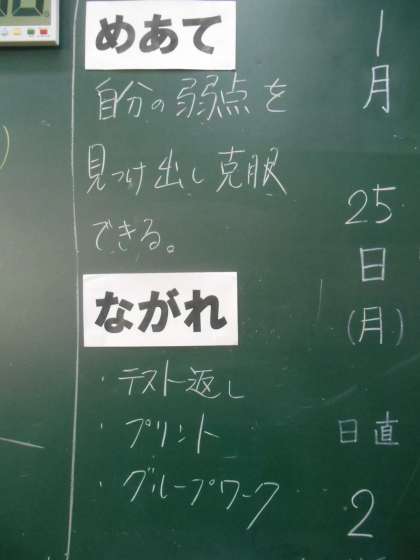 1月25日(月)
日直
2
めあて
自分の弱点を
見つけ出し克服
できる。
ながれ
・テスト返し
・プリント
・グループワーク